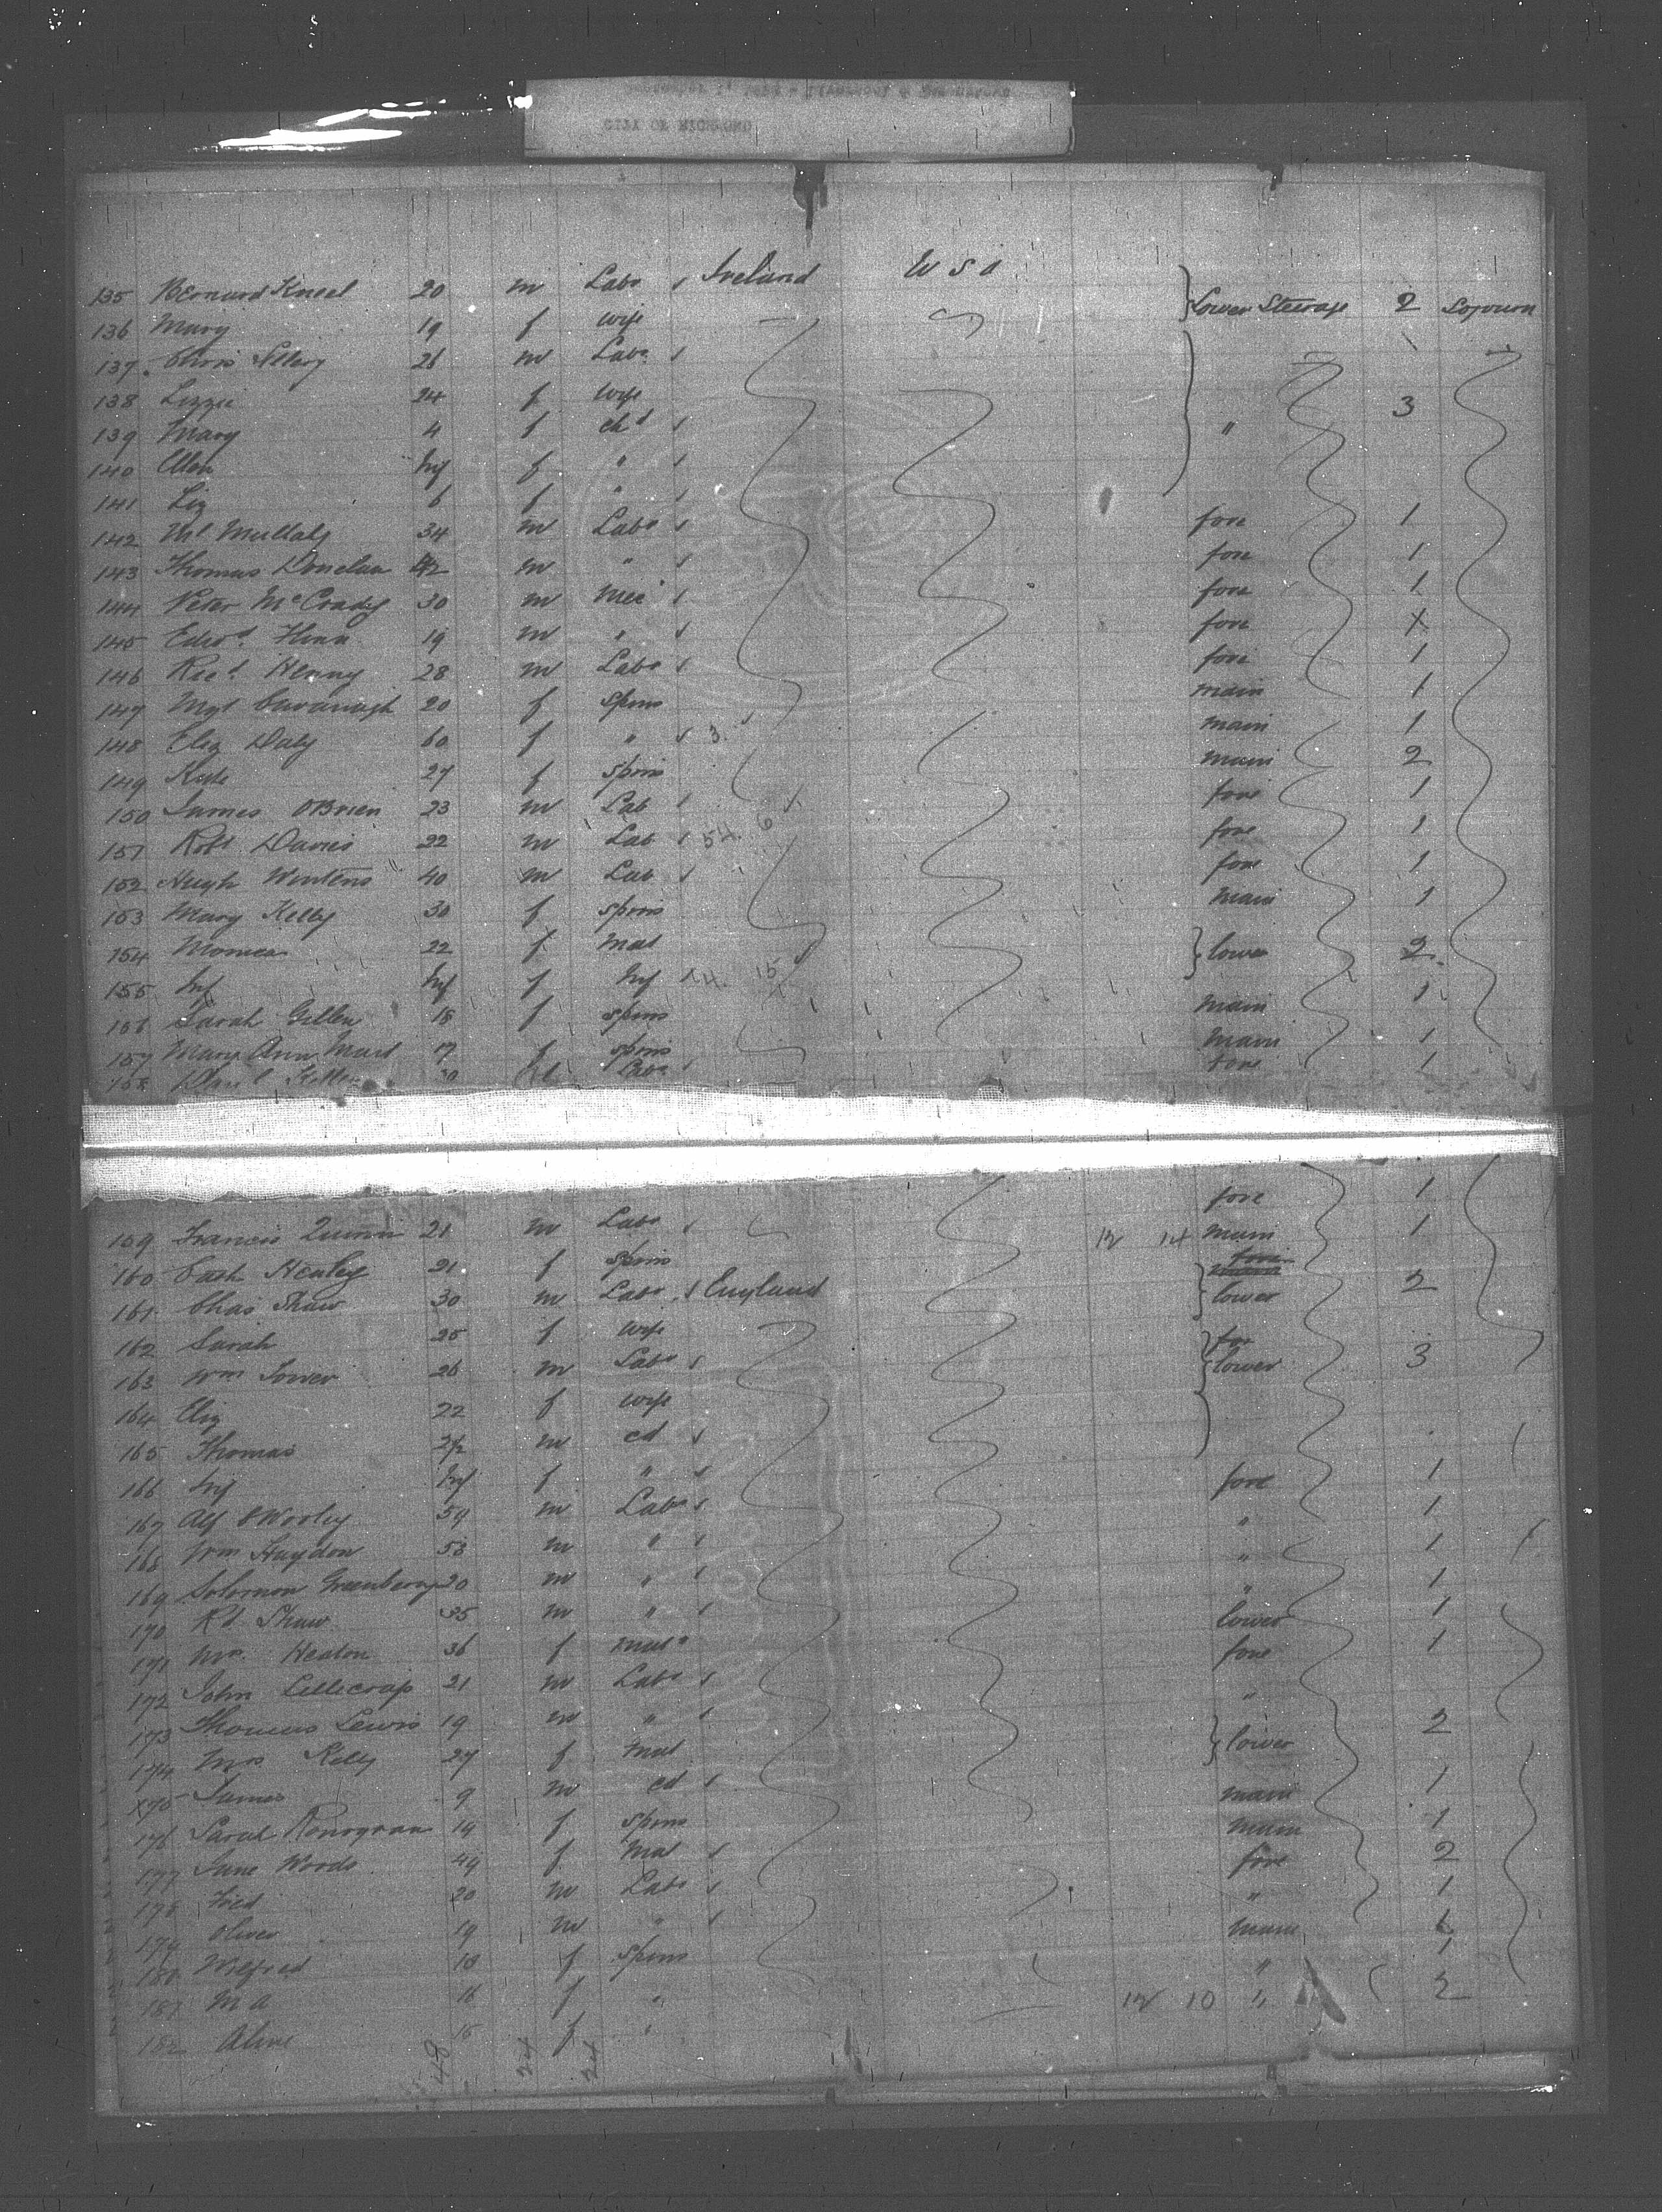 CITY OF RICHMOND
135 Bernard Kneel 20 m Labr Ireland U S A Lower Steerage 2 Sojourn
136 Mary 19 f wife
137 Chris 26 m Labr
138 Lizzie 24 f wife 3
139 Mary 4 f chd "
140 Ellen Inf f "
141 Liz 6 f "
142 Ml Mullaly 34 m Labr fore 1
143 Thomas Donelan 42 m " fore 1
144 Peter McCrady 30 m fore 1
145 Edwd. 19 m " fore
146 Ricd. Henry 28 m Labr fore 1
147 Mgt Cavanagh 20 f spins main 1
148 Eliz Daly 60 f " 3 main 1
149 Kate 27 f spins main 2
150 James OBrien 23 m Lab fore 1
151 Robt Davies 22 m Lab 54 6 fore 1
152 Hugh 40 m Lab fore 1
153 Mary Kelly 30 f spins main 1
154 Monica 22 f mat lower 2
155 Inf Inf f Inf 14 15
156 Sarah Gillen 18 f spins main 1
157 Mary Ann 17 f spins main 1
158 30 Labr fore 1
fore 1
159 Francis Quinn 21 m Labr main 1
160 Cath Healey 21 f spins 12 14
161 Chas Shaw 30 m Labr England lower 2
162 Sarah 25 f wife
163 Wm Tower 26 m Labr lower 3
164 Eliz 22 f wife
165 Thomas m cd
166 Inf Inf f " fore 1
167 Alf 59 m Labr " 1
168 Wm Haydon 53 m " " 1
169 Solomon Greenberg 20 m " " 1
170 Rd Shaw 35 m " lower 1
171 Mrs. Heaton 36 f fore 1
172 John Lellicrap 21 m Labr "
173 Thomas Lewis 19 m "
174 Mrs Kelly 27 f mat lower 2
175 James 9 m cd main 1
176 Sarah 19 f spins main 1
177 Jane Woods 49 f Mat fore 2
178 Fred 20 m Labr " 1
179 Oliver 19 m " main
180 Wilfred f spins " 1
181 M A 16 f " 12 10 " 2
182 15 f "
48 24 24